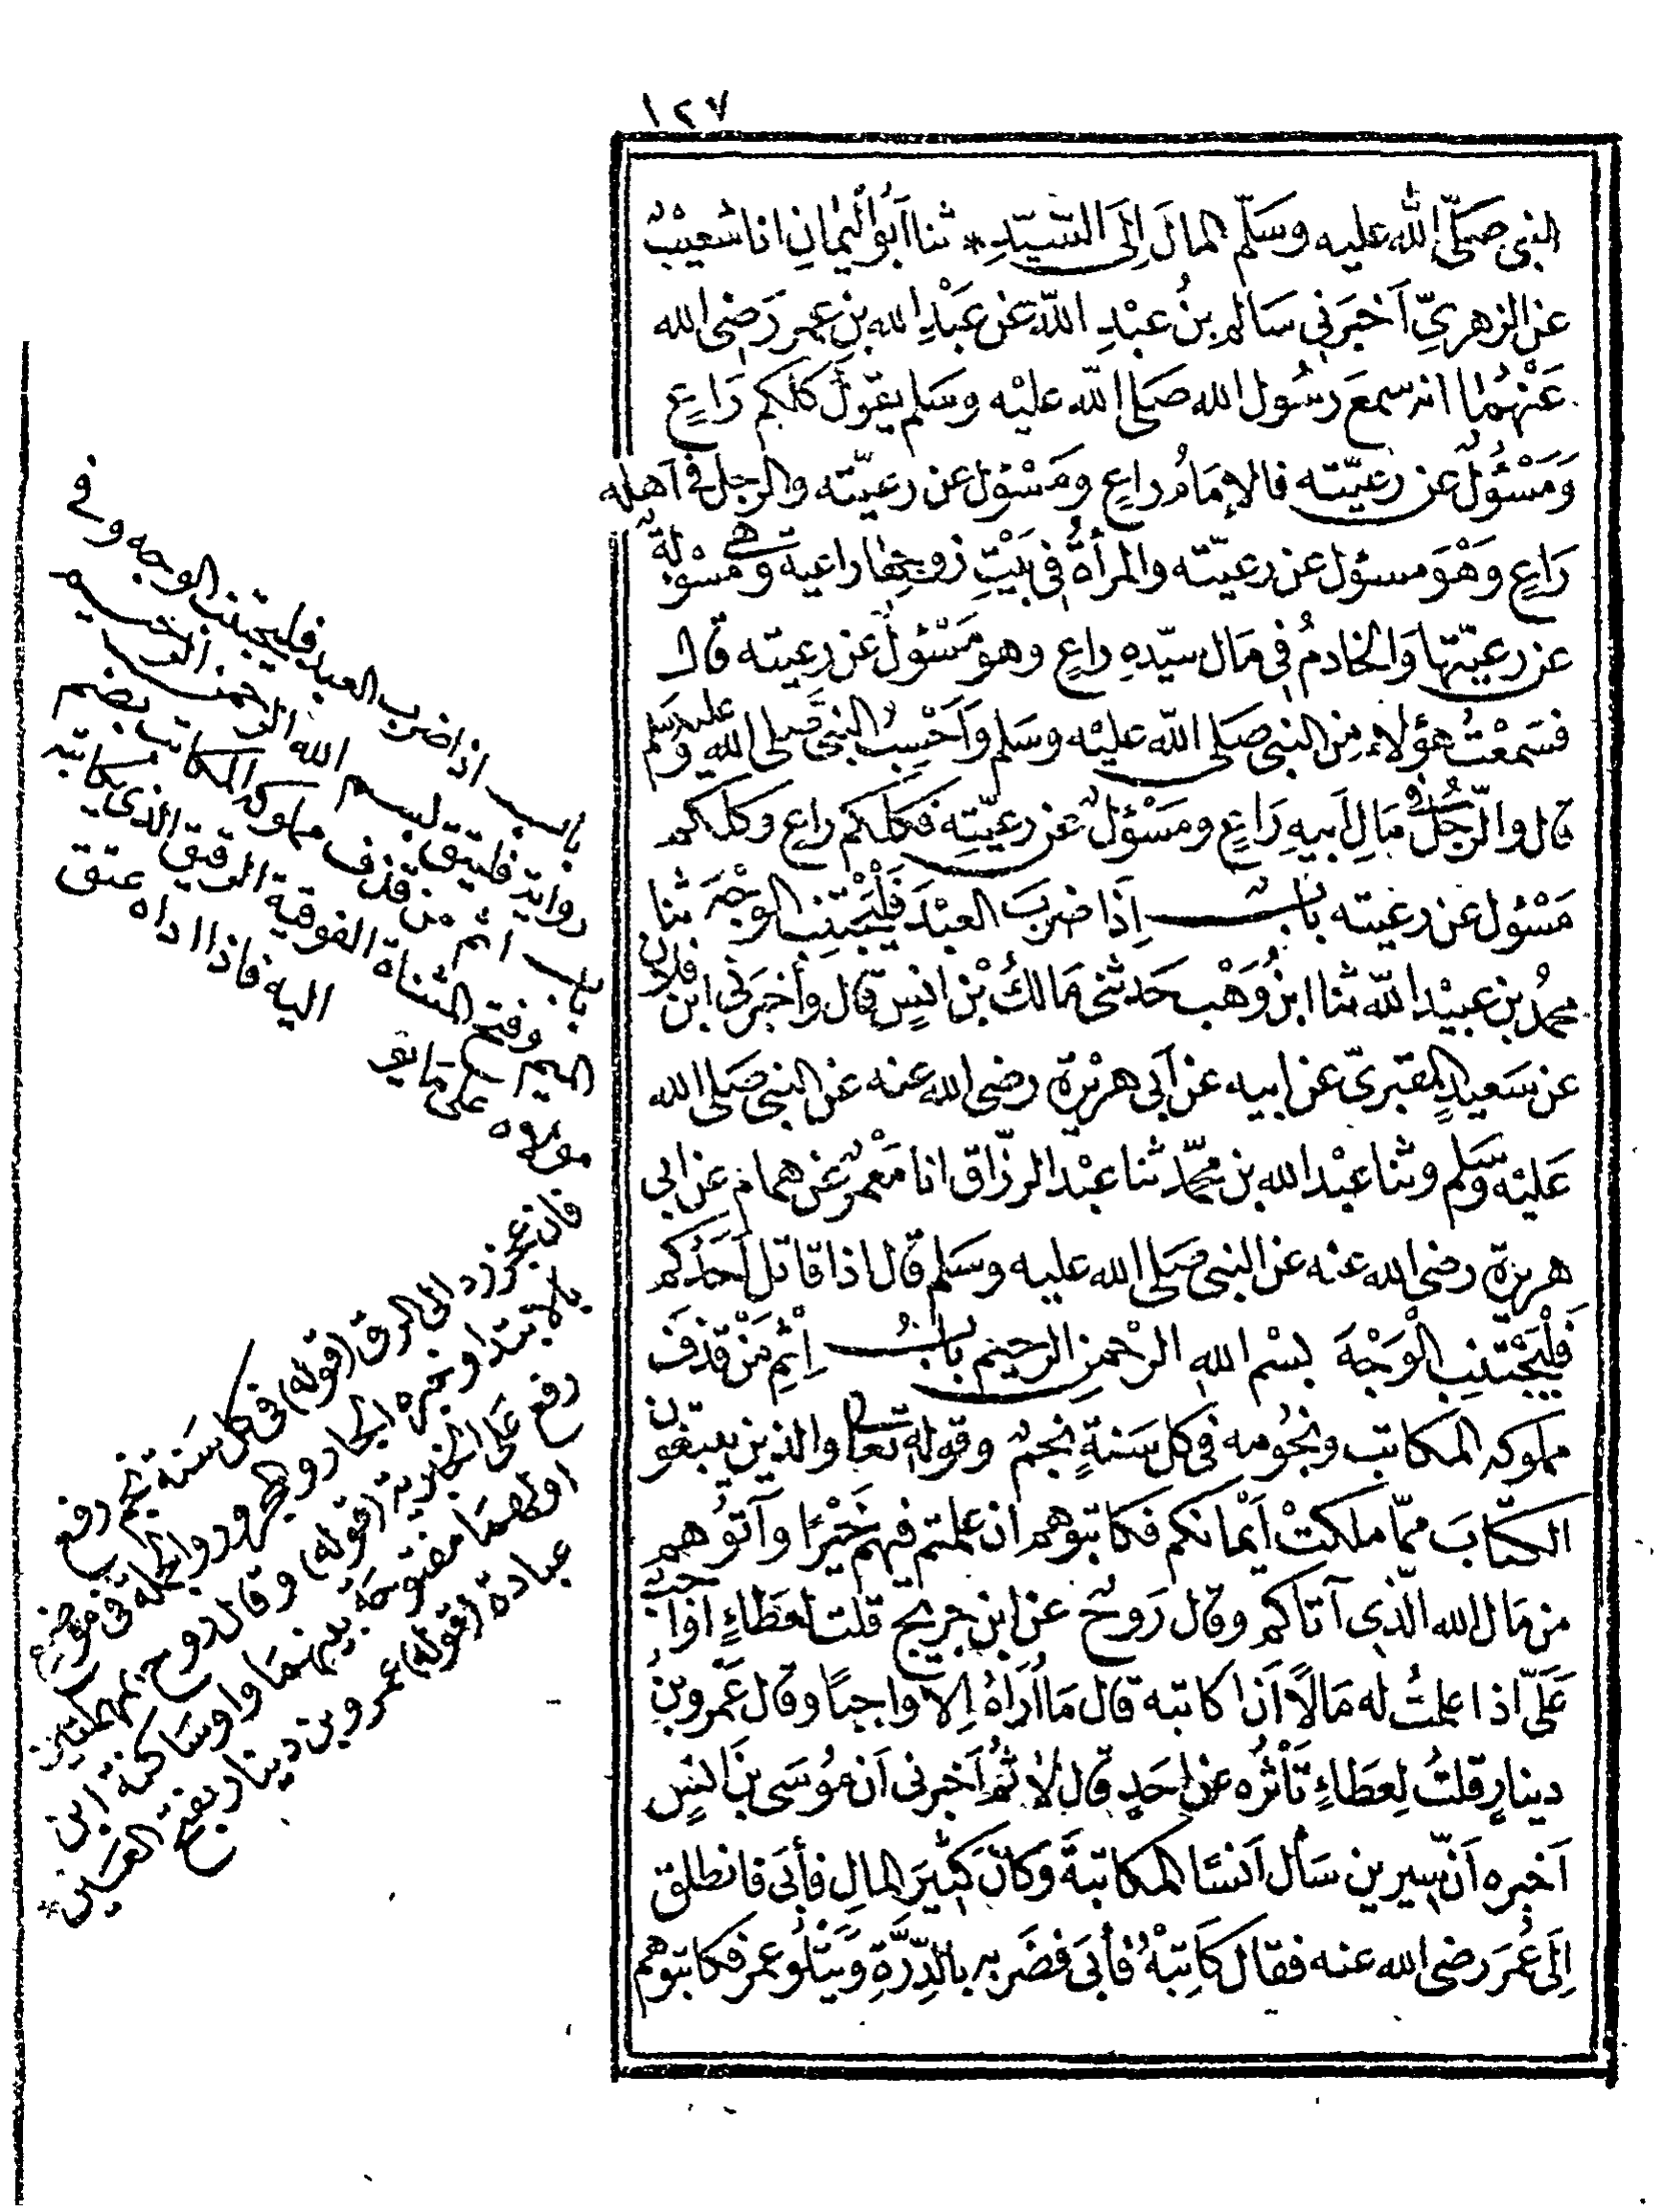 ١٢٧
النبى صَلّى الله عليه وسَلّم المالَ اِلَى السّيّدِ * ثنا اَبُو اليَمانِ انا شعيبٌ
عن الزهرىِّ اَخبَرَنى سَالم بنُ عبْدِ اللّه عَن عَبْدِ الله بنِ عمر رَضِى الله
عَنْهُما انه سمعَ رسُول الله صَلى اللّه عليْه وسَلم يقولُ كلكم رَاعٍ
وَمَسْؤلٌ عن رعيّته فالإمَامُ راعٍ ومَسْؤل عن رعيّته والرجل فى اَهله
رَاعٍ وهْوَ مسؤل عن رعيّته والمرأةُ فى بَيْتِ زوجها راعية وهى مسْؤلةٌ
عن رعيّتها وَالخادمُ فى مَال سيّدهِ راعٍ وهو مَسْؤلٌ عن رعيته قال
فسَمعْتُ هؤلاء من النبى صَلى اللّه عليْه وسَلم وَاَحْسِبُ النبىَّ صلى الله عليه وسَلم
قال والرّجلُ فى مَالِ اَبيهِ رَاعٍ ومَسْؤلٌ عن رعيّتهِ فكلكم راعٍ وكلكم
مَسْؤل عن رعيته بابٌ اِذا ضرَبَ العبْدَ فَلْيَجْتنِب الوَجْهَ ثنا
محمدُ بن عبيْد اللّه ثنا ابنُ وَهْب حَدثنى مَالكُ بْن انسٍ قال وأخبَرَنى ابن فلان
عن سَعيدٍ المقبَرىّ عن ابيه عن اَبى هريْرة رضى الله عنه عن النبى صَلى الله
عَليْه وسَلم وثنا عبْد الله بن محمّد ثنا عبْد الرزّاق انا مَعْمرٌ عن همام عن ابى
هريرة رضى الله عنه عن النبى صَلى الله عليه وسَلم قال اذا قاتل اَحَدُكم
فَلْيَجْتنِبِ الْوَجْهَ بسْم الله الرحْمن الرحيم بابُ اِثمِ مَنْ قذفَ
مملوكه المكاتب ونجُومه فى كل سَنةٍ نجمٌ وقولهِ تعالى والذين يبتغون
الكتابَ ممّا ملكتْ اَيْمانكم فكاتبوهم ان علمتم فيهم خَيْرًا وآتوُهم
من مَال الله الّذى آتاكم وقال رَوحٌ عن ابن جريج قلت لعَطاءٍ اَوَاجبٌ
عَلَىّ اذا علمتُ له مَالًا اَن اكاتبه قال مَا اُرَاهُ اِلا واجبًا وقال عَمْرو بنِ
دينارٍ قلتُ لِعطَاءٍ تَأثرُه عن احَدٍ قال لا ثمُ اَخبرنى اَن موُسَى بنَ انسٍ
اَخبره اَنّ سيرين سَأل اَنسًا المكاتبةَ وَكانَ كثيرَ المالِ فأبَى فانطلق
اِلَى عُمَرَ رضى الله عنه فقال كاتِبْهُ فأبَى فضَربه بالدِّرَّةِ وَيَتْلوُ عمر فكاتبوهم
باب اذا ضرب العبد فليجتنب الوجه وفى
رواية فليتق بسم الله الرحمن الرحيم
باب اثم من قذف مملوكه المكاتب بضم
الميم وفتح المثناة الفوقية الرقيق الذى يكاتبه
مولاه على مَا يؤ اليه فاذا اداه عتق
فان عجز رد الى الرق (قوله) فى كل سَنة نجم رفع
بالابتدا وخبره الجار والمجرور والجملة فى موضع
رفع على الخبرية (قوله) وقال روح بمهملتين
اولاهمَا مفتوحة بينهمَا واو سَاكنة ابن
عبادة (قوله) عمرو بن دينار بفتح العَين *